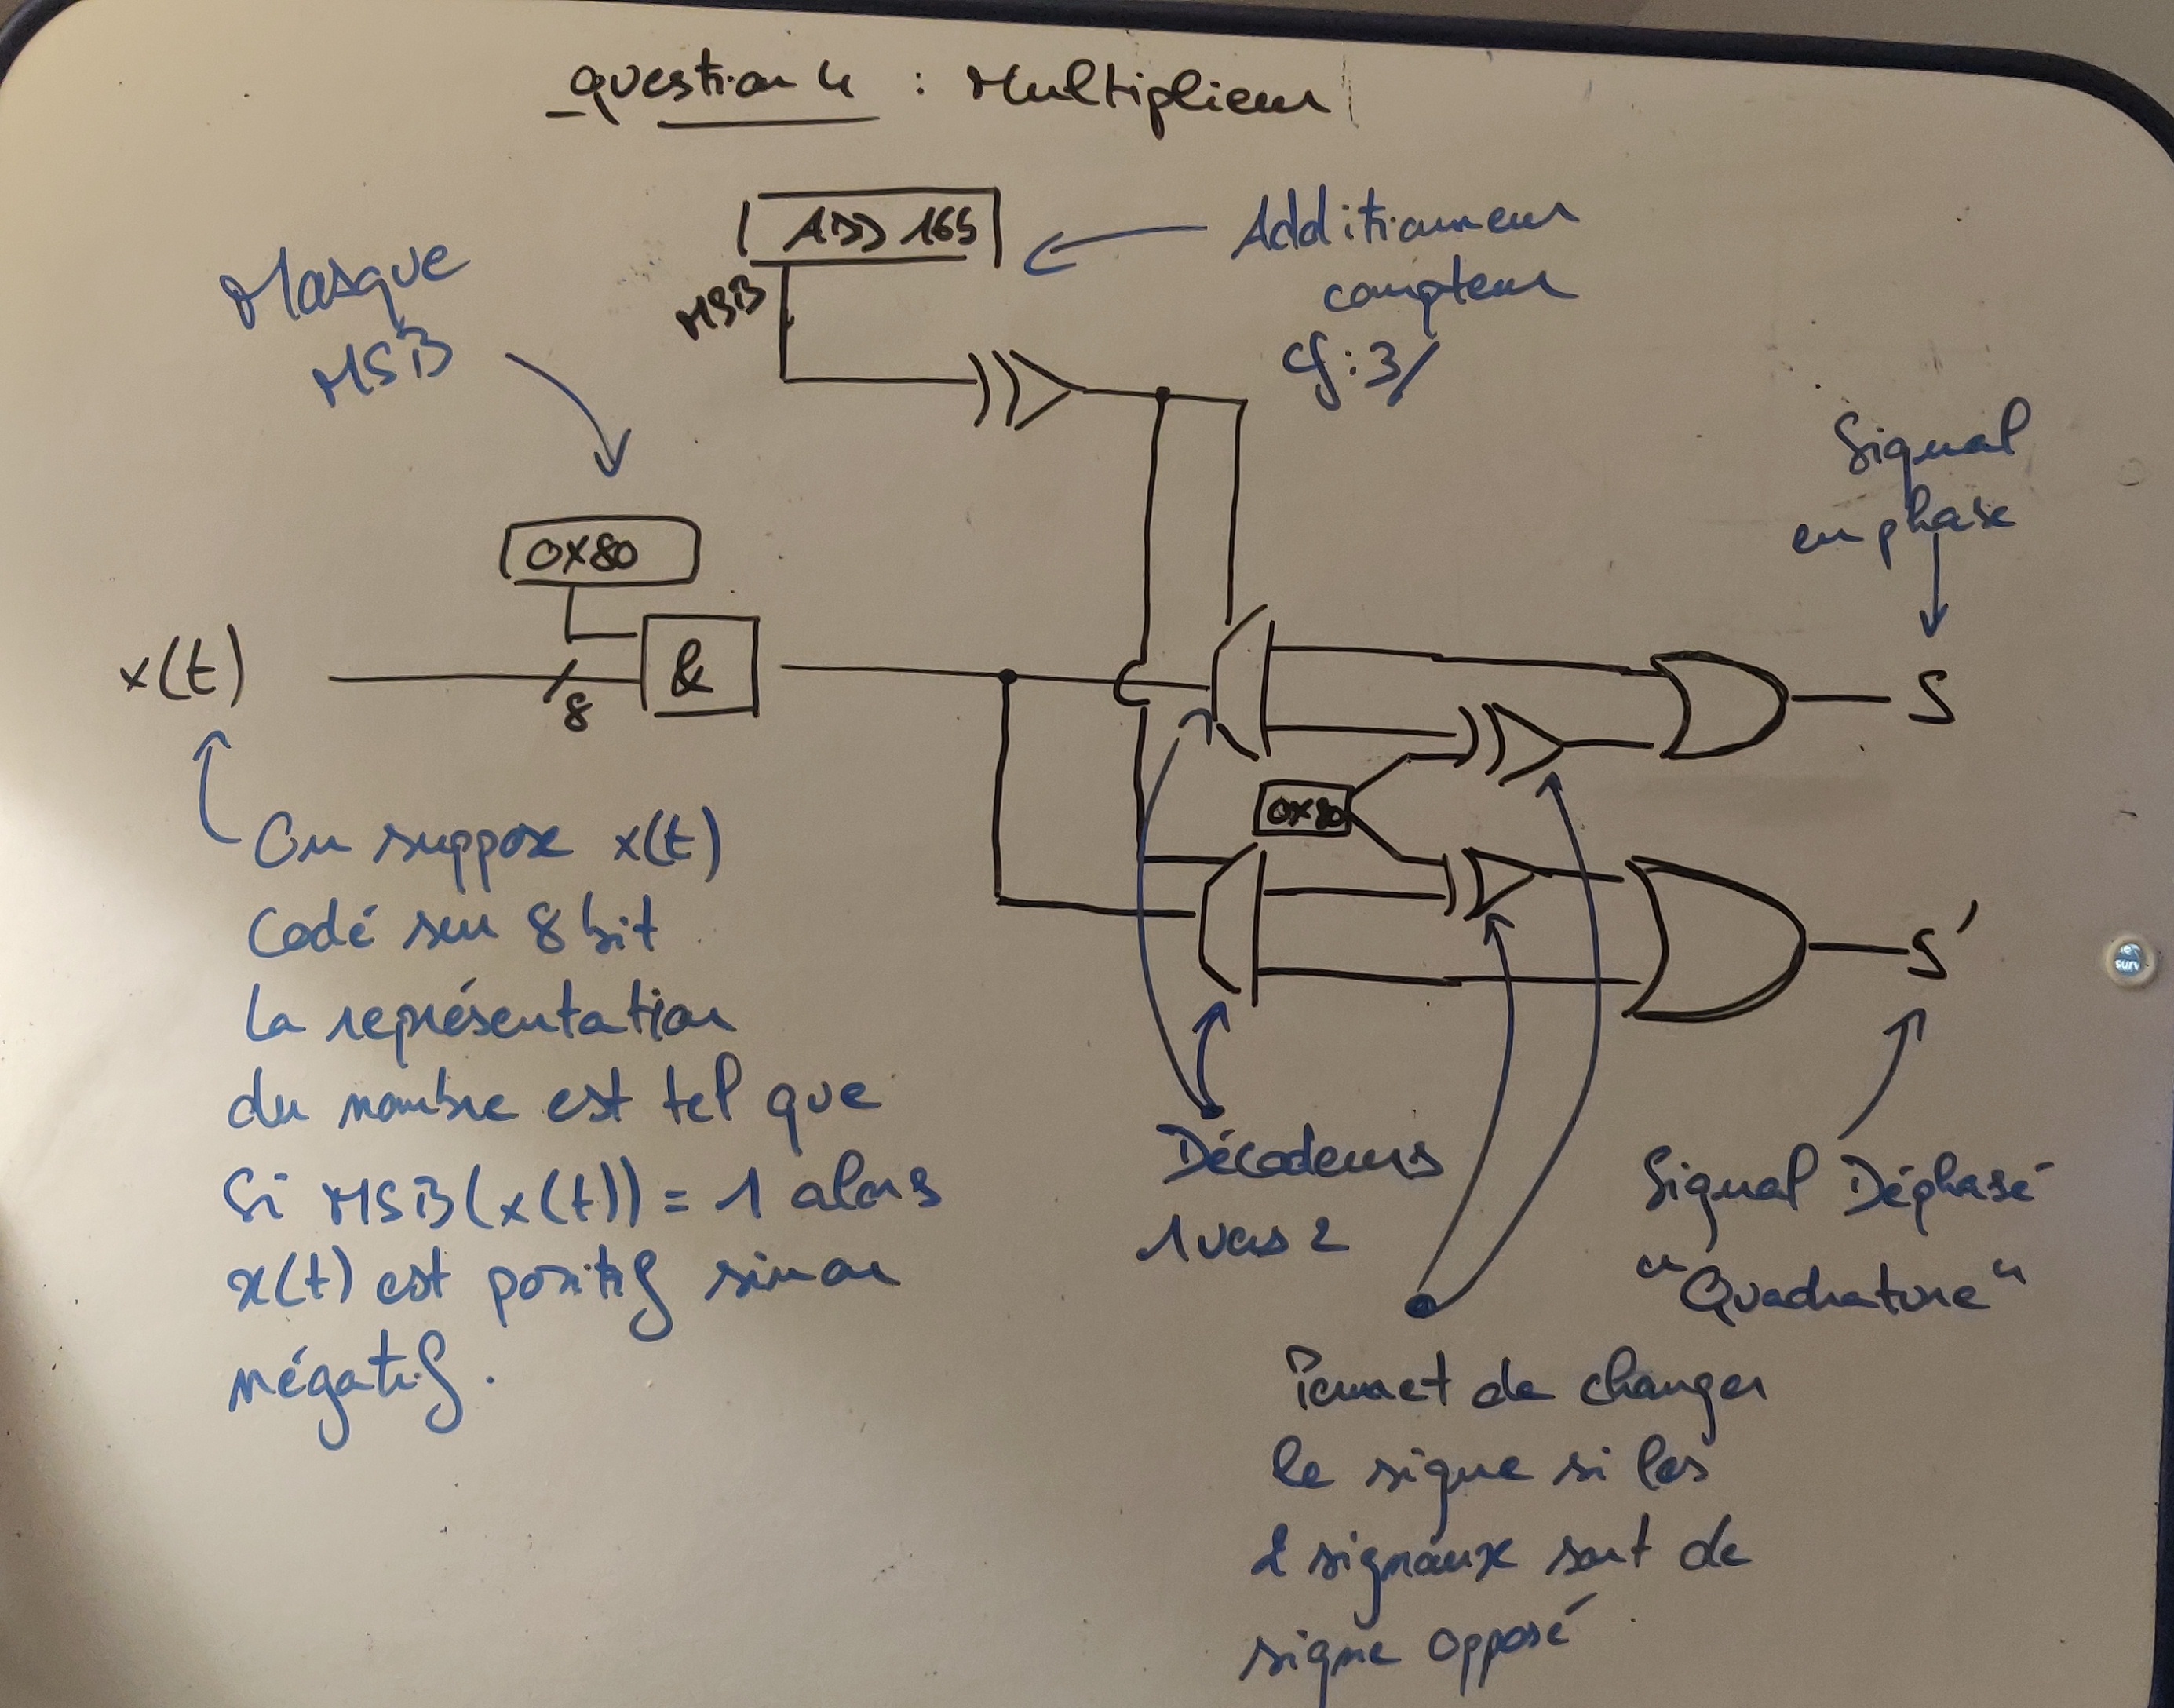 question 4 : Multiplieur
ADD 165
MSB
Additionneur
compteur
cf : 3/
Masque
MSB
Signal
en phase
0X80
&
x(t)
8
S
0X80
S'
On suppose x(t)
Codé sur 8 bit
La représentation
du nombre est tel que
Si MSB(x(t)) = 1 alors
x(t) est positif sinon
négatif.
Décodeurs
1 vers 2
Signal Déphasé
"Quadrature"
Permet de changer
le signe si les
2 signaux sont de
signe opposé
surv